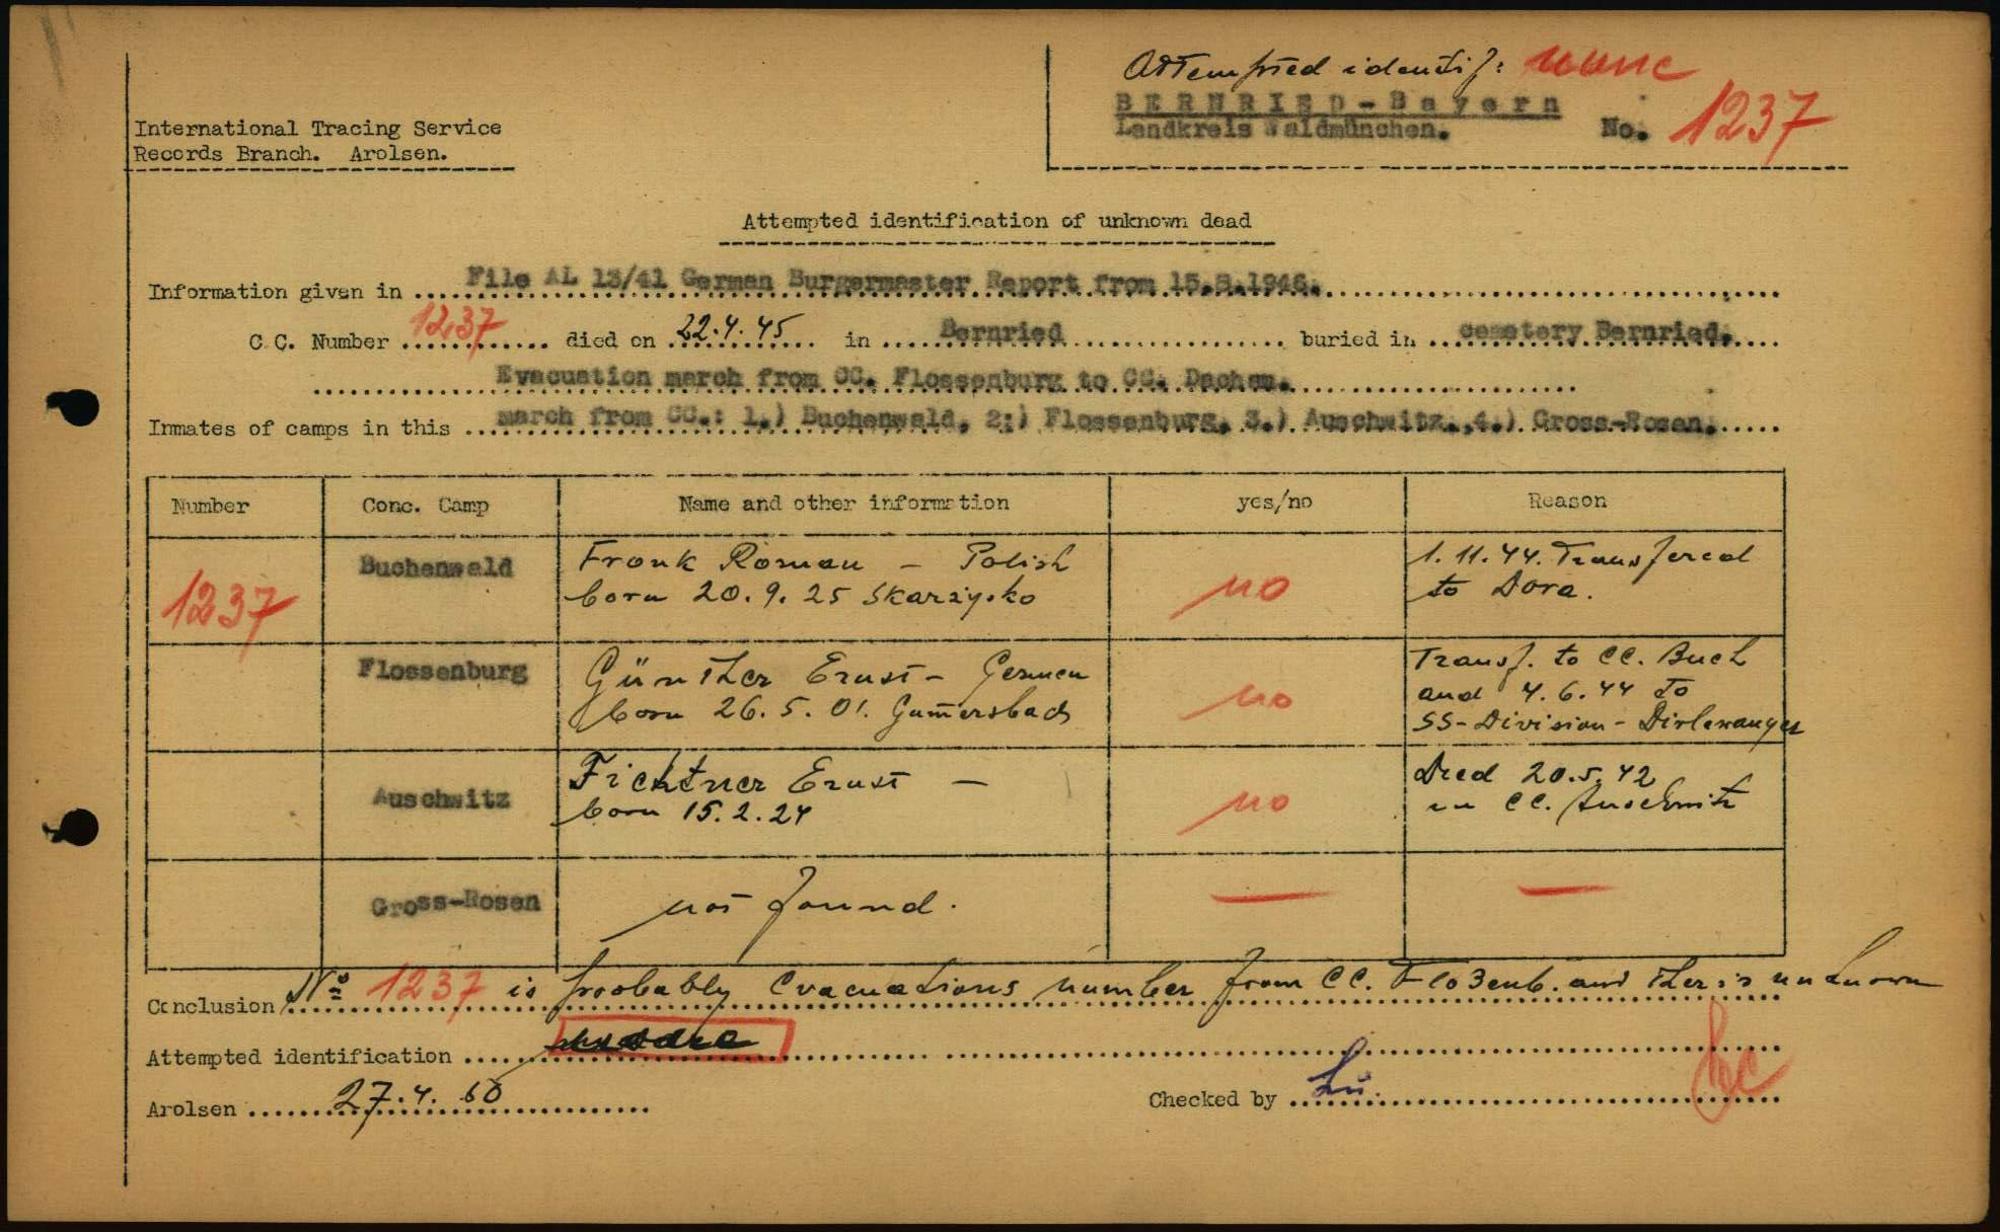 Attempted identif: none
BERNRIED-Bayern
Landkreis Waldmünchen. No. 1237
International Tracing Service
Records Branch. Arolsen.
Attempted identification of unknown dead
Information given in File AL 13/41 German Burgermaster Report from 1946.
C.C. Number 1237 died on 22.4.45 in Bernried buried in cemetery Bernried.
Evacuation march from CC. Flossenburg to CC. Dachau.
Inmates of camps in this march from CC.: 1.) Buchenwald, 2:) Flossenburg, 3.) Auschwitz.,4.) Gross-Rosen.
Number Conc. Camp Name and other information yes/no Reason
1237 Buchenwald Frank Roman - Polish no 1.11.44. Transfered
born 20.9.25 Skarzysko to Dora.
Flossenburg Günther Ernst - German no Transf. to CC. Buch
born 26.5.01. Gumersbach and 4.6.44 to
SS-Division - Dirlewanger
Auschwitz Fichtner Ernst - no Died 20.5.42
born 15.2.24 in CC. Auschwitz
Gross-Rosen not found. — —
Conclusion No 1237 is probably Evacuations number from CC. Floßenb. and ther is unknown
Attempted identification
Arolsen 27.4.60 Checked by